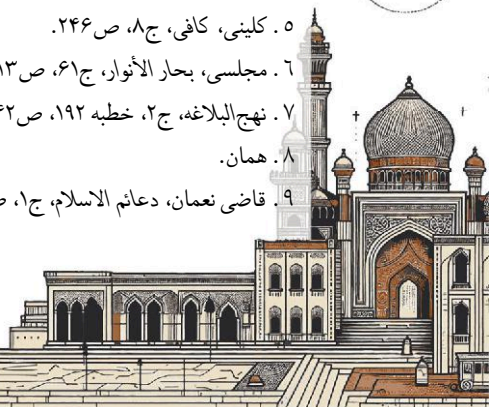 ۵. کلینی، کافی، ج۸، ص۲۴۶.
۶. مجلسی، بحار الأنوار، ج۶۱، ص۱۳
۷. نهج‌البلاغه، ج۲، خطبه ۱۹۲، ص
۸. همان.
۹. قاضی نعمان، دعائم الاسلام، ج۱،